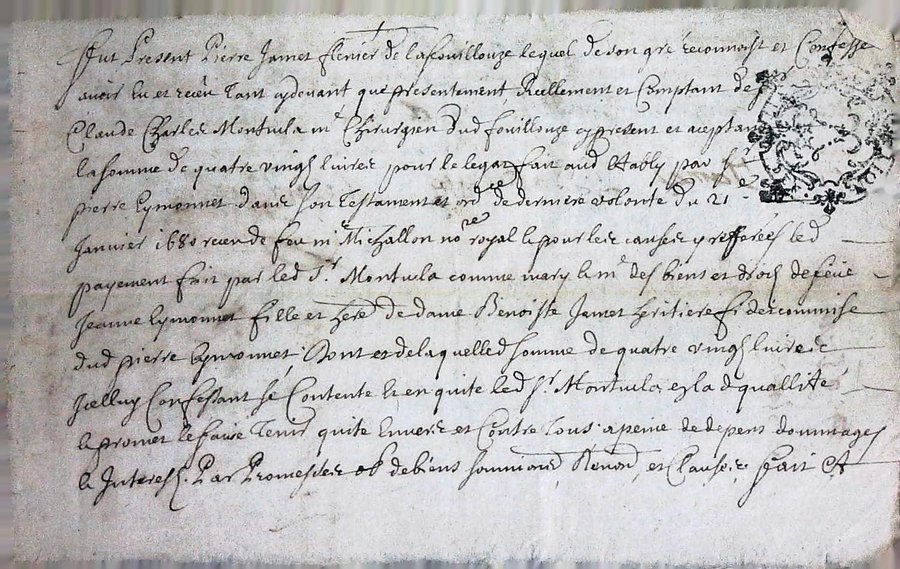 Fut Present Pierre Jamet flenier de Lafouillouze lequel de son gré reconnoist et Confesse
avoir Eu et receu Tant cydevant que presentement Reellement et Comptant de
Claude Charles Montula me Chirurgien dud fouillouze cy present et aceptant
la somme de quatre vingts livres pour le legat fait aud Estably par
pierre Eymonnet dans son Testament et ordce de derniere volonte du 21e
Janvier 1680 receu de feu me Michallon nore royal & pour les causes prefferées led
payement fait par led Sr. Montula comme mary & me des biens et droits de feue
Jeanne Eymonnet fille et here de dame Benoiste Jamet heritiere fideicommise
dud pierre Eymonnet, Dont et de laquelle d somme de quatre vingts livres
Jcelluy Confessant se Contente & en quite led Sr. Montula ez la d quallité
& promet le faire Tenir quite Envers et Contre Tous a peine de depens dommages
& Interests. Par Promesses ob de biens soumions Renon et Clauses. fait A